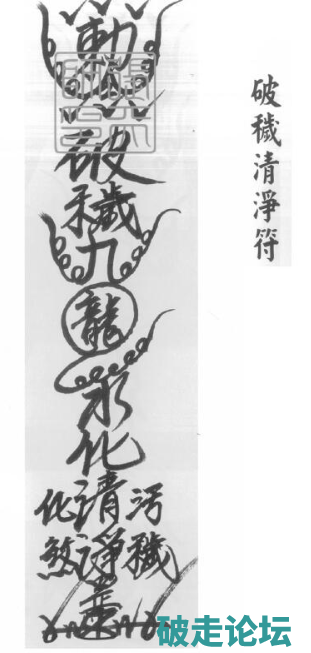 破穢清淨符
勅
破
穢
九
龍
水
化
清
淨
污穢
化煞
破走论坛